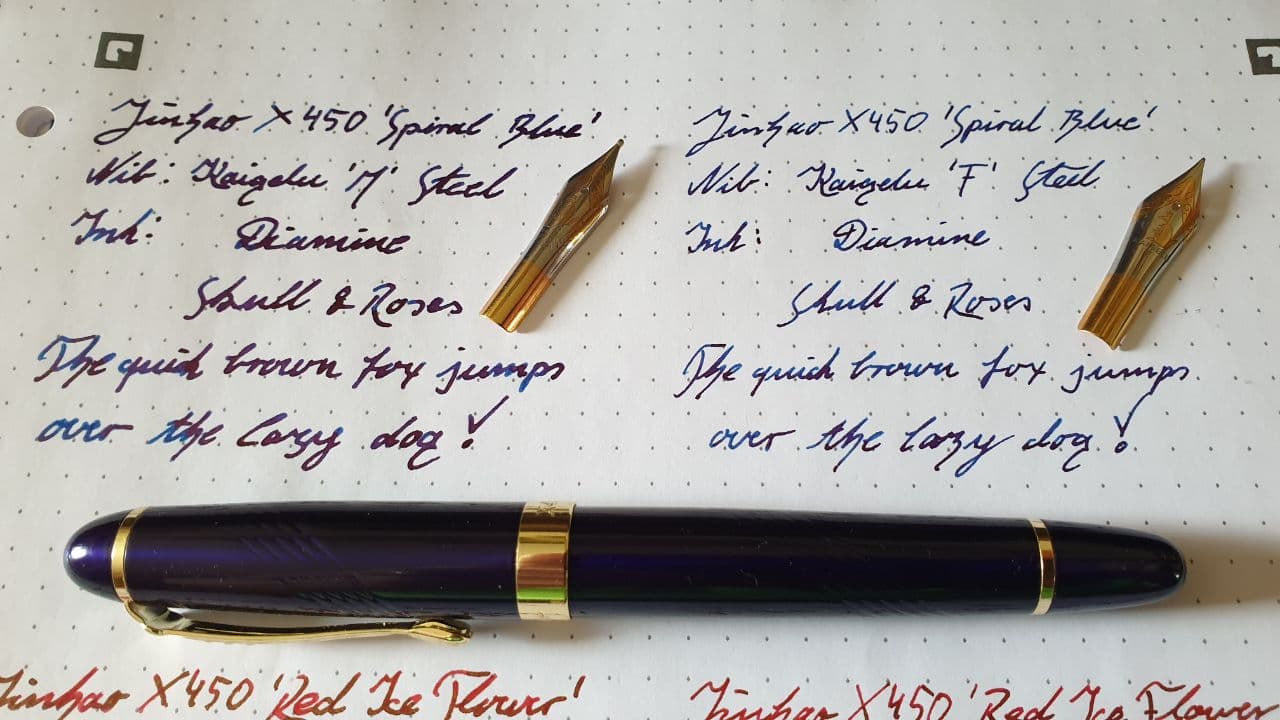 Jinhao X450 'Spiral Blue'
Nib: Kaigelu 'M' Steel
Ink: Diamine
Skull & Roses
The quick brown fox jumps
over the lazy dog!
Jinhao X450 'Spiral Blue'
Nib: Kaigelu 'F' Steel
Ink: Diamine
Skull & Roses
The quick brown fox jumps
over the lazy dog!
Jinhao X450 'Red Ice Flower'
Jinhao X450 'Red Ice Flower